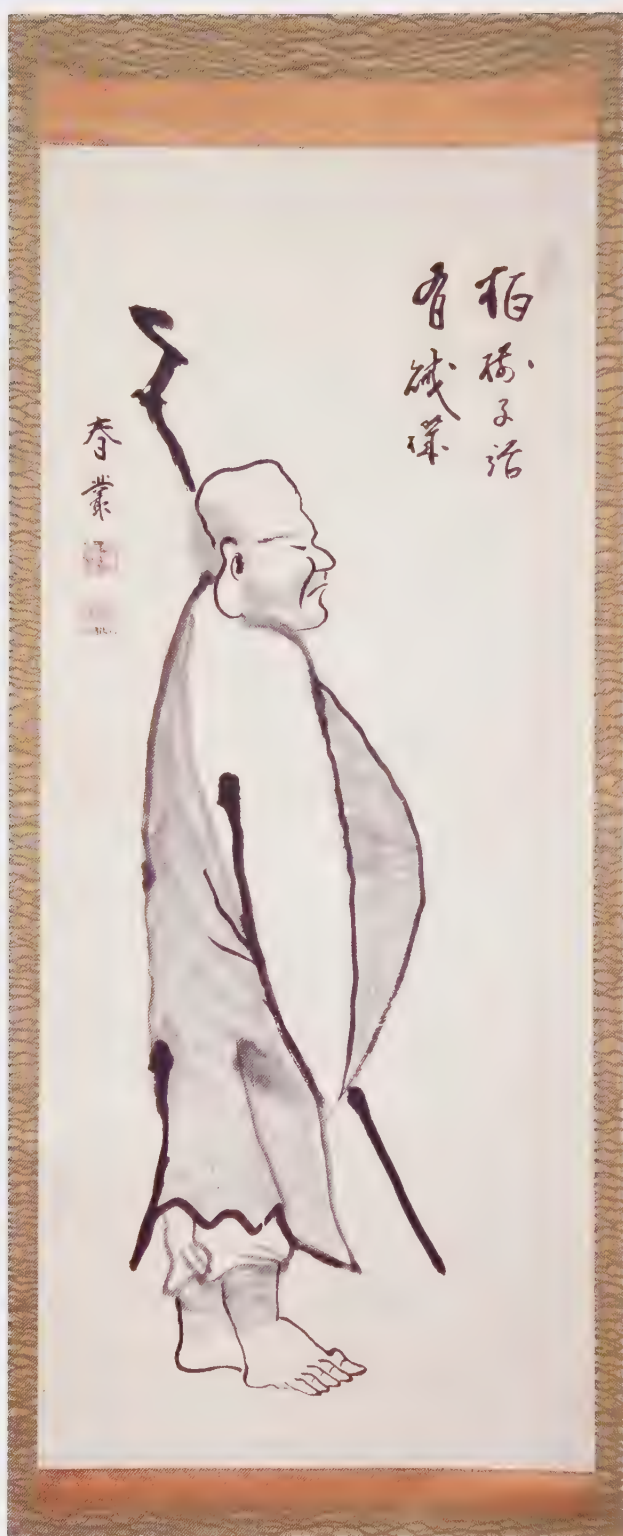 柏樹子話
有賊機
春叢